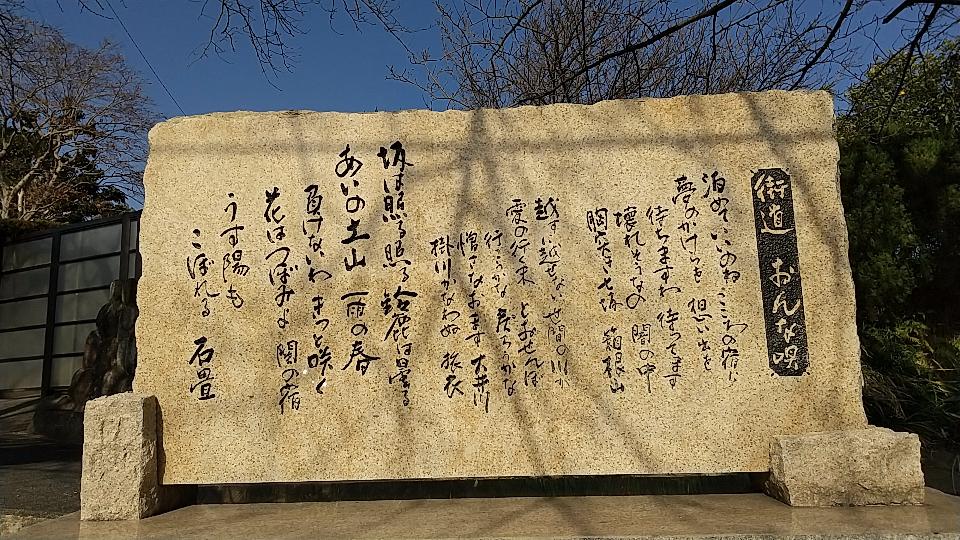 街道 おんな唄
泊めて いのね こころの宿に
夢のかけらも 想い出を
待ちますわ 待ってます
壊れそうなの 闇の中
胸突き七坂 箱根山
越すに越せない 世間の川が
愛の行く末 とおせんぼ
行こうかな 戻ろうかな
憎さなおます 大井川
掛川かなわぬ 旅衣
坂は照る照る 鈴鹿は曇る
あいの土山 雨の春
負けないわ きっと咲く
花はつぼみよ 関の宿
うす陽も
こぼれる 石畳